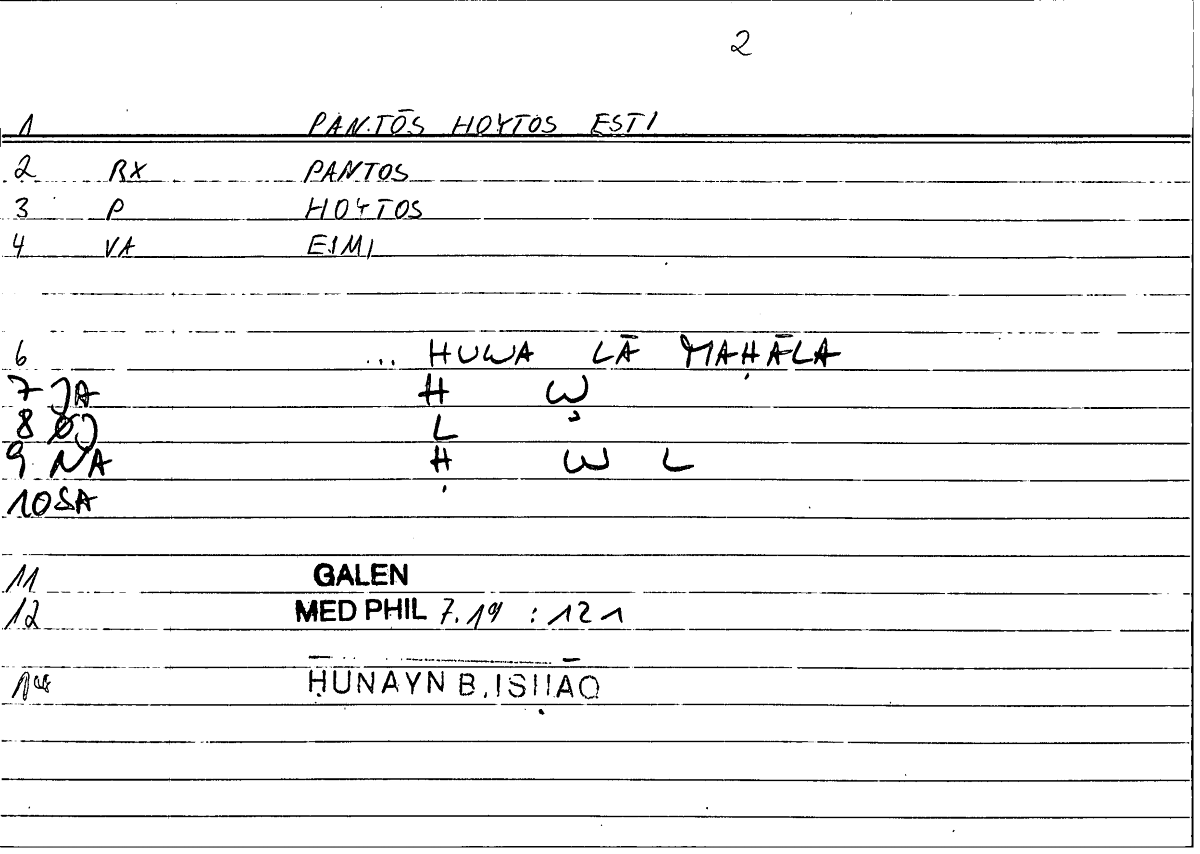 2
1 PANTŌS HOYTOS ESTI
2 RX PANTOS
3 P HOYTOS
4 VA EIMI
6 ... HUWA LĀ MAḤĀLA
7 JA H W
8 L
9 NA Ḥ W L
10 SA
11 GALEN
12 MED PHIL 7.19 : 121
14 ḤUNAYN B. ISḤĀQ